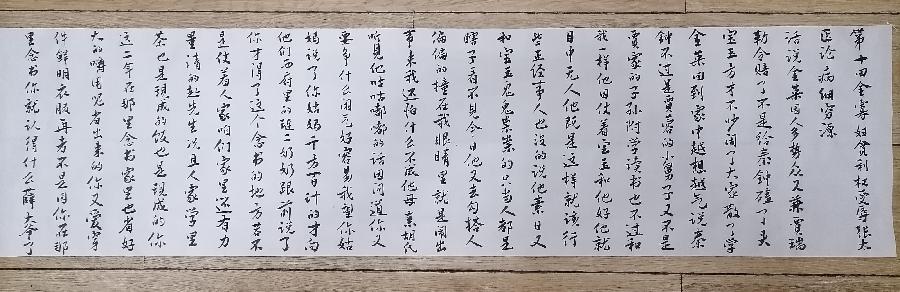 第十回金寡妇贪利权受辱张太
医论病细穷源
话说金荣因人多势众又兼贾瑞
勒令赔了不是给秦钟磕了头
宝玉方才不吵闹了大家散了学
金荣回到家中越想越气说秦
钟不过是贾蓉的小舅子又不是
贾家的子孙附学读书也不过和
我一样他因仗着宝玉和他好他就
目中无人他既是这样就该行
些正经事人也没的说他素日又
和宝玉鬼鬼祟祟的只当人都是
瞎子看不见今日他又去勾搭人
偏偏的撞在我眼睛里就是闹出
事来我还怕什么不成他母亲胡氏
听见他咕咕嘟嘟的话因问道你又
要争什么闲气好容易我望你姑
妈说了你姑妈千方百计的才向
他们西府里的琏二奶奶跟前说了
你才得了这个念书的地方若不
是仗着人家咱们家里还有力
量请的起先生况且人家学里
茶也是现成的饭也是现成的你
这二年在那里念书家里也省好
大的嚼用呢省出来的你又爱穿
件鲜明衣服再者不是因你在那
里念书你就认得什么薛大爷了